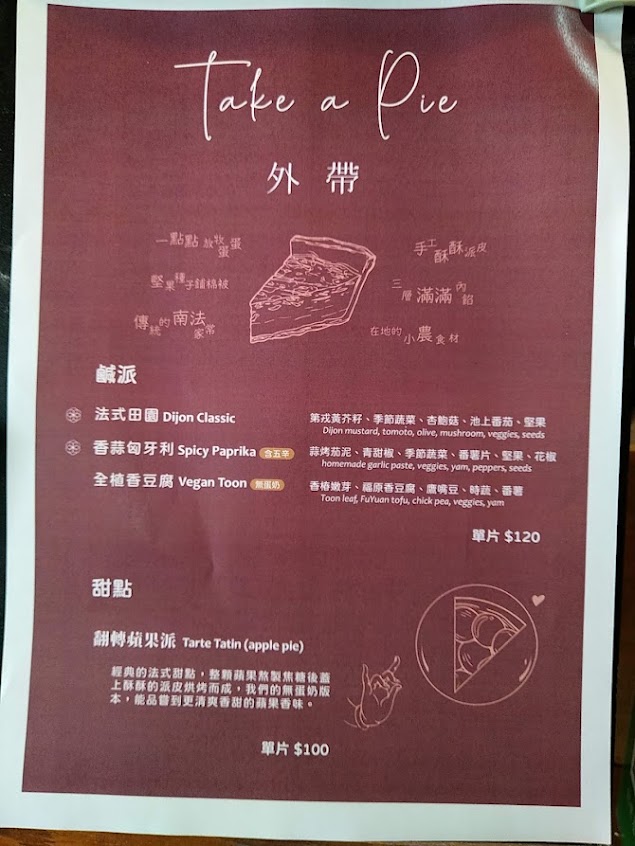 Take a Pie
外帶
一點點 放牧蛋蛋
手工酥酥派皮
堅果種子鋪棉被
三層 滿滿內餡
傳統的南法家常
在地的小農食材
鹹派
法式田園 Dijon Classic
第戎黃芥籽、季節蔬菜、杏鮑菇、池上番茄、堅果
Dijon mustard, tomoto, olive, mushroom, veggies, seeds
香蒜匈牙利 Spicy Paprika 含五辛
蒜烤茄泥、青甜椒、季節蔬菜、番薯片、堅果、花椒
homemade garlic paste, veggies, yam, peppers, seeds
全植香豆腐 Vegan Toon 無蛋奶
香椿嫩芽、福原香豆腐、鷹嘴豆、時蔬、番薯
Toon leaf, FuYuan tofu, chick pea, veggies, yam
單片 $120
甜點
翻轉蘋果派 Tarte Tatin (apple pie)
經典的法式甜點，整顆蘋果熬製焦糖後蓋
上酥酥的派皮烘烤而成，我們的無蛋奶版
本，能品嘗到更清爽香甜的蘋果香味。
單片 $100